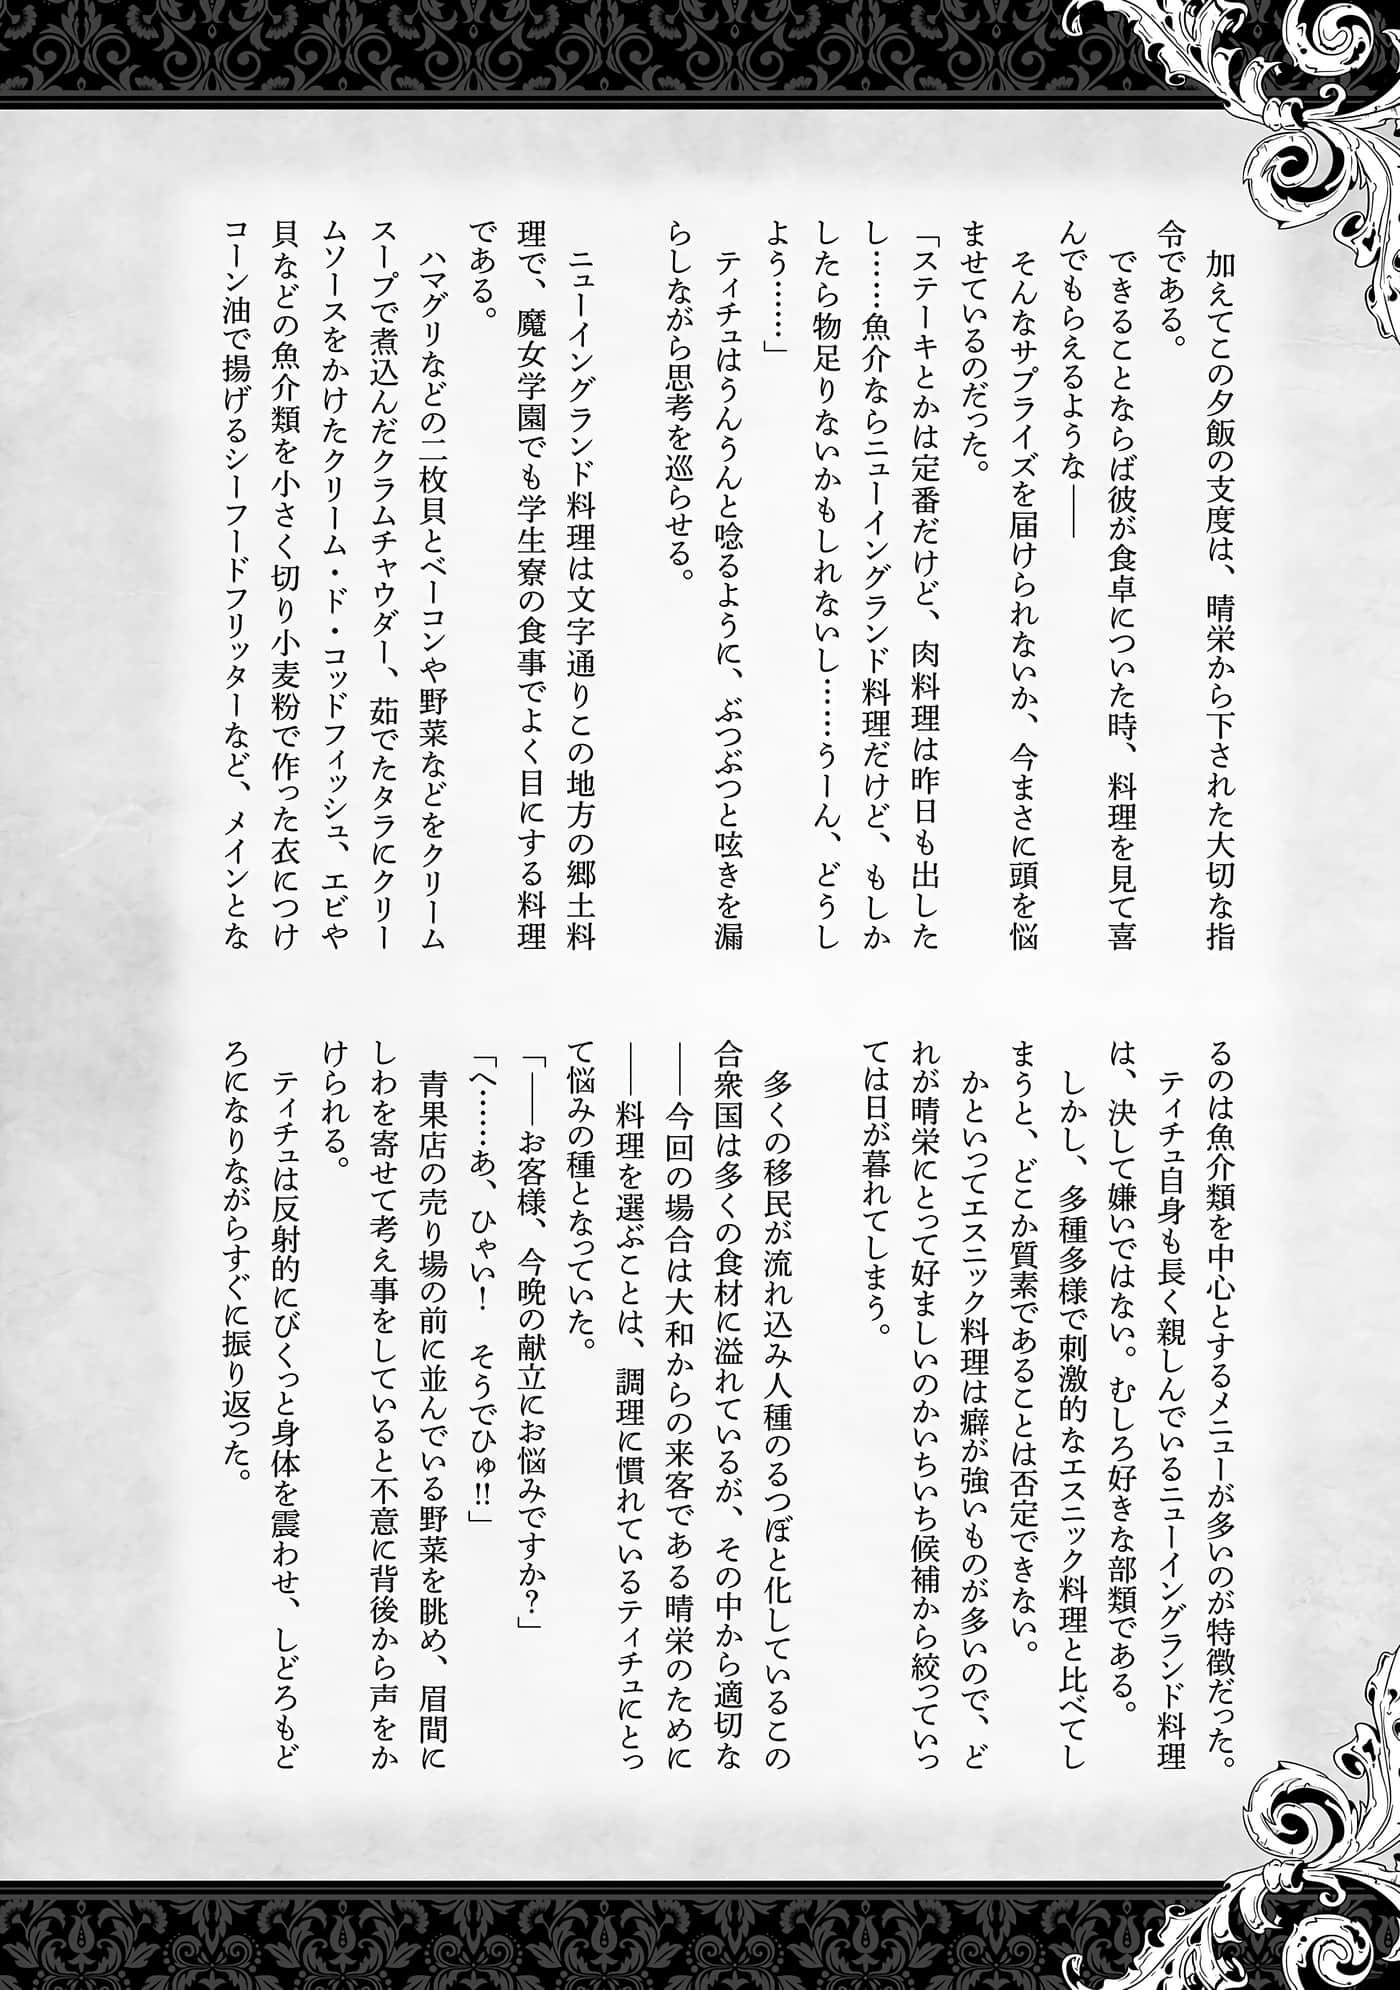 加えてこの夕飯の支度は、晴栄から下された大切な指
令である。
　できることならば彼が食卓についた時、料理を見て喜
んでもらえるような――
　そんなサプライズを届けられないか、今まさに頭を悩
ませているのだった。
「ステーキとかは定番だけど、肉料理は昨日も出した
し……魚介ならニューイングランド料理だけど、もしか
したら物足りないかもしれないし……うーん、どうし
よう……」
　ティチュはうんうんと唸るように、ぶつぶつと呟きを漏
らしながら思考を巡らせる。
　ニューイングランド料理は文字通りこの地方の郷土料
理で、魔女学園でも学生寮の食事でよく目にする料理
である。
　ハマグリなどの二枚貝とベーコンや野菜などをクリーム
スープで煮込んだクラムチャウダー、茹でたタラにクリー
ムソースをかけたクリーム・ド・コッドフィッシュ、エビや
貝などの魚介類を小さく切り小麦粉で作った衣につけ
コーン油で揚げるシーフードフリッターなど、メインとな
るのは魚介類を中心とするメニューが多いのが特徴だった。
　ティチュ自身も長く親しんでいるニューイングランド料理
は、決して嫌いではない。むしろ好きな部類である。
　しかし、多種多様で刺激的なエスニック料理と比べてし
まうと、どこか質素であることは否定できない。
　かといってエスニック料理は癖が強いものが多いので、ど
れが晴栄にとって好ましいのかいちいち候補から絞っていっ
ては日が暮れてしまう。
　多くの移民が流れ込み人種のるつぼと化しているこの
合衆国は多くの食材に溢れているが、その中から適切な
――今回の場合は大和からの来客である晴栄のために
――料理を選ぶことは、調理に慣れているティチュにとっ
て悩みの種となっていた。
「――お客様、今晩の献立にお悩みですか？」
「へ……あ、ひゃい！　そうでひゅ!!」
　青果店の売り場の前に並んでいる野菜を眺め、眉間に
しわを寄せて考え事をしていると不意に背後から声をか
けられる。
　ティチュは反射的にびくっと身体を震わせ、しどろもど
ろになりながらすぐに振り返った。